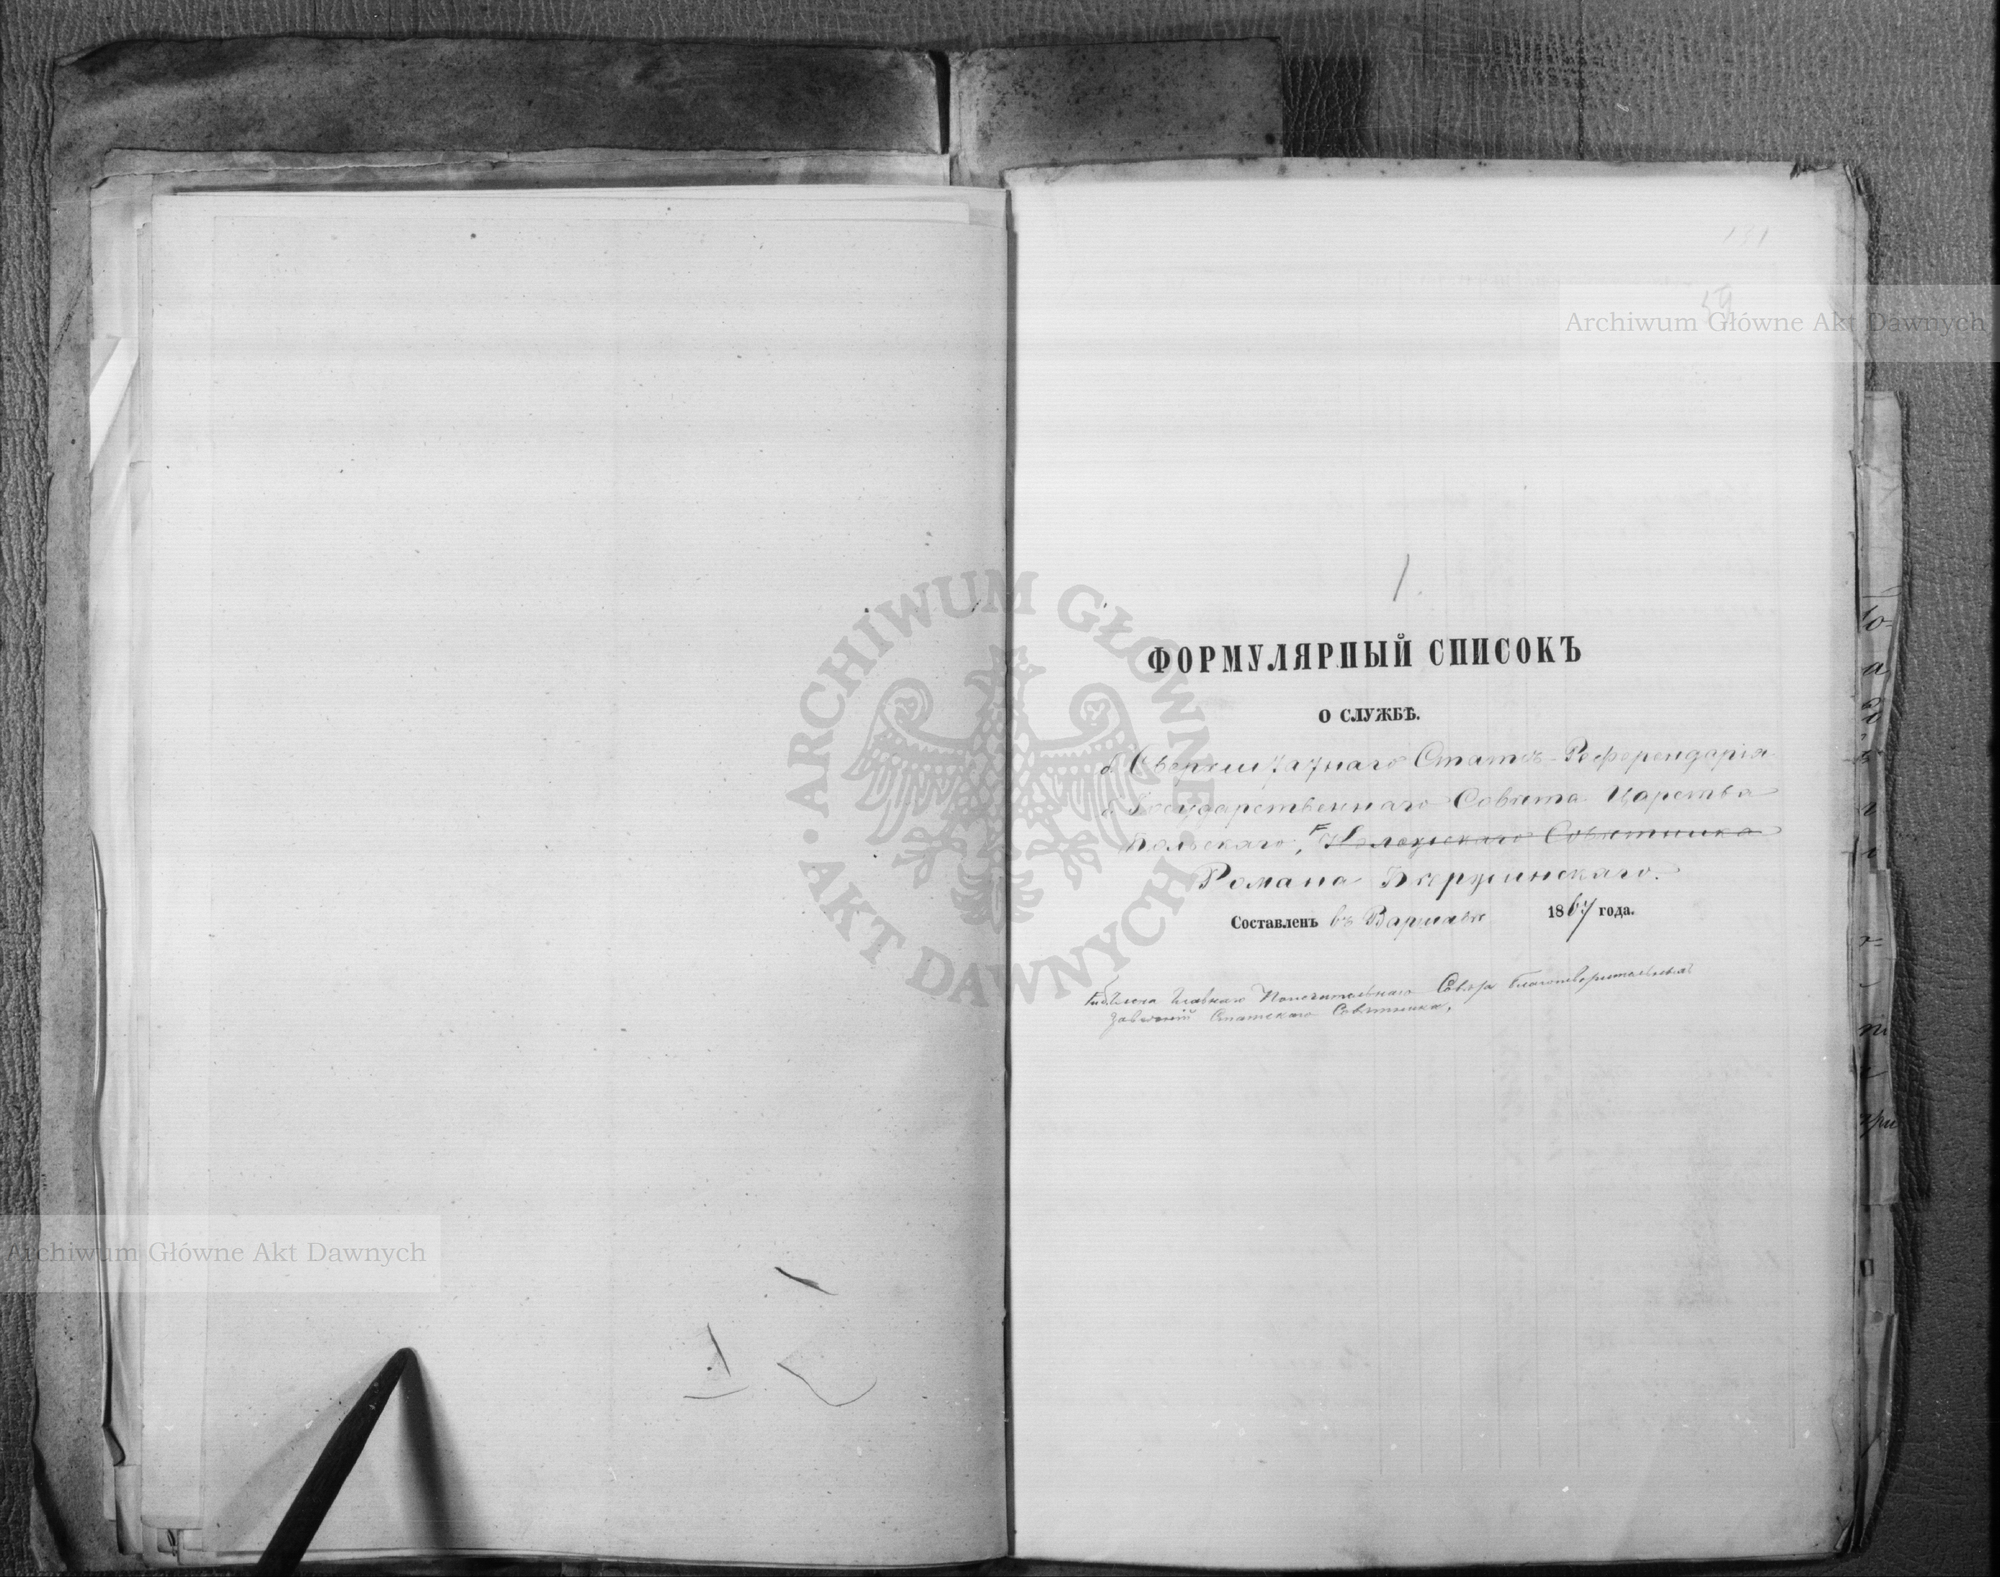 131
59
Archiwum Główne Akt Dawnych
1.
ФОРМУЛЯРНЫЙ СПИСОКЪ
О СЛУЖБѢ.
б. Сверхштатнаго Статсъ-Референдарія
б. Государственнаго Совѣта Царства
Польскаго, Совѣтника
Романа
Составленъ въ Варшавѣ 1867 года.
Члена Главнаго Попечительнаго Совѣта благотворительныхъ
заведеній Статскаго Совѣтника,
ARCHIWUM GŁÓWNE AKT DAWNYCH
Archiwum Główne Akt Dawnych